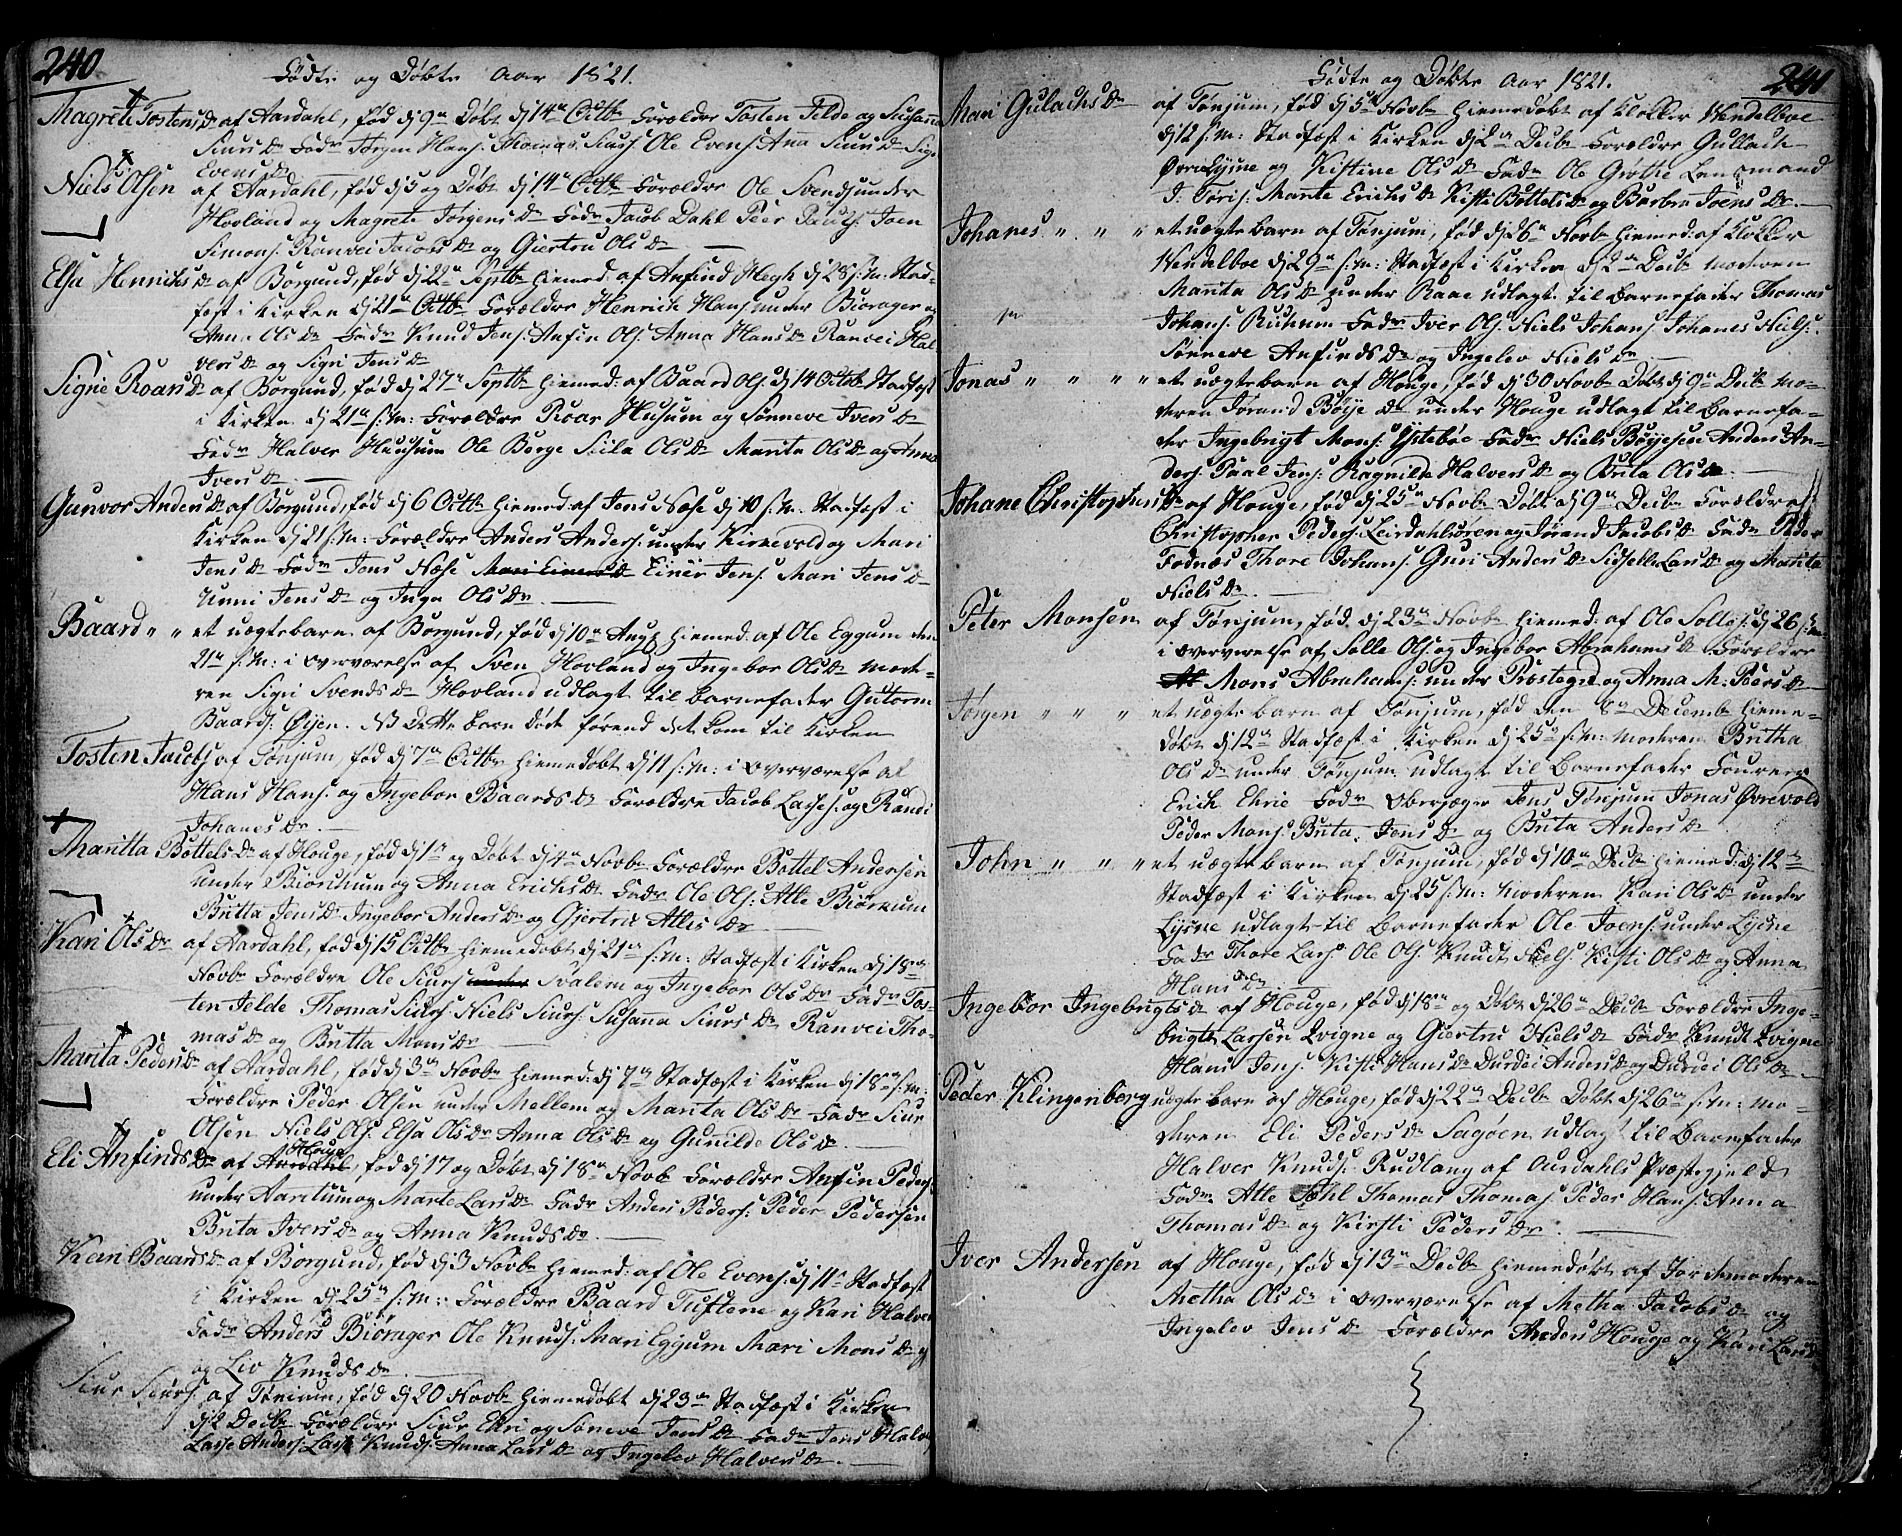 240
Fødte og Døbte Aar 1821.
Magrete Tostens Dr af Aardahl, fød dj 9n Døbt dj 14n Octbr Forældre Tosten Jelde og Susana
Siurs Dr Fadr Jørgen Hans: Thomas Siurs: Ole Evens: Anna Siurs Dr Sigr
Evens Dr
Niels Olsen af Aardahl, fød dj 5 og Døbt dj 14n Octbr Forældre Ole Svends: under
Hovland og Magrete Jørgens Dr Fadr Jacob Dahl Peer Pauls: Joen
Simons: Ranvei Jacobs Dr og Giertru Ols Dr
Elsa Henrichs Dr af Borgund, fød dj 22n Septbr hiemed: af Anfind Hegh dj 28 s: m: Stad-
fæst i Kirken dj 21n Octbr Forældre Henrich Hans: under Biørager og
Anna Ols Dr Fadr Knud Jens: Anfin Ols: Anna Hans Dr Ranvei Hal
vers Dr og Sigri Jens Dr
Signe Roars Dr af Borgund, fød dj 27n Septbr hiemed: af Baard Ols: dj 14 Octob Stadfæst
i Kirken dj 21n s: m: Forældre Roar Husum og Sønneve Ivers Dr
Fadr Halver Husum Ole Borge Siila Ols Dr Marita Ols Dr og Anna
Ivers Dr
Gunvor Anders Dr af Borgund, fød dj 6 Octbr hiemed: af Jens Næse dj 10 s: m: Stadfæst i
Kirken dj 21 s: m: Forældre Anders Anders: under Kirkevold og Mari
Jens Dr Fadr Jens Næse Mari Einers Dr Einer Jens: Mari Jens Dr
Unni Jens Dr og Inga Ols Dr
Baard " " et uægte barn af Borgund, fød dj 10n Aug: hiemed: af Ole Eggum den
21n s: m: i overværelse af Sven Hovland og Ingebor Ols Dr mode-
ren Sigri Svends Dr Hovland udlagt til barnefader Guttorm
Baards: Øijen. NB Dette barn døde førend det kom til Kirken
Tosten Jacobs: af Tønjum, fød dj 7n Octbr hiemedøbt dj 11 s: m: i overværelse af
Hans Hans: og Ingebor Baards Dr Forældre Jacob Lasses: og Randi
Johanes Dr
Maritta Bottels Dr af Houge, fød dj 1n og Døbt dj 4n Novbr Forældre Bottel Andersen
under Biørchum og Anna Erichs Dr Fadr Ole Ols: Atle Biørkum
Britta Jens Dr Ingebor Anders Dr og Gjertru Atles Dr
Kari Ols Dr af Aardahl, fød dj 15 Octbr hiemedøbt dj 21n s: m: Stadfæst i Kirken dj 18n
Novbr Forældre Ole Siurs: under Svalem og Ingebor Ols Dr Fadr Tos-
ten Jelde Thomas Siurs: Niels Siurs: Susanna Siurs Dr Ranvei Tho-
mas Dr og Britta Mons Dr
Marita Peders Dr af Aardahl, fød dj 3n Novbr hiemed: dj 7n Stadfæst i Kirken dj 18n s: m:
Forældre Peder Olsen under Mellem og Marita Ols Dr Fadr Siur
Olsen Niels Ols: Elsa Ols Dr Anna Ols Dr og Gunilde Ols Dr
Houge
Eli Anfinds Dr af Aardahl, fød dj 17 og Døbt dj 18n Novb Forældre Anfin Peders:
under Aaretum og Marte Lars Dr Fadr Anders Peders: Peder Pedersen
Brita Ivers Dr og Anna Knuds Dr
Kari Baards Dr af Borgund, fød dj 3 Novbr hiemed: af Ole Evens: dj 11n Stadfæst
i Kirken dj 25n s: m: Forældre Baard Tuftene og Kari Halvers
Fadr Anders Biørager Ole Knuds: Mari Eggum Mari Mons Dr
og Liv Knuds Dr
Siur Siurs: af Tønium, fød dj 20 Novbr hiemedøbt dj 23n Stadfæst i Kirken
dj 2 Decbr Forældre Siur Ehri og Sønneve Jens Dr Fadr Jens Halvers:
Lasse Anders: Lasse Knuds: Anna Lars Dr og Ingelev Halvers Dr
241
Fødte og Døbte Aar 1821.
Mari Gulachs Dr af Tønjum, fød dj 5n Novbr hiemedøbt af Klokker Wendelboe
dj 12 s: m: Stadfæst i Kirken dj 2n Decbr Forældre Gullach
Øvre Lysne og Kistine Ols Dr Fadr Ole Grøthe Lensmand
J: Joris: Marite Erichs Dr Kisti Bottels Dr og Barbra Joens Dr
Johanes " " " et uægte barn af Tønjum, fød dj 26n Novbr hiemed: af Klokker
Wendelboe dj 29n s: m: Stadfæst i Kirken dj 2n Decbr moderen
Marita Ols Dr under Raae udlagt til Barnefader Thomas
Johans: Ruhum Fadr Iver Ols: Niels Johans: Johanes Niels:
Sønneve Anfinds Dr og Ingelev Niels Dr
Jonas " " " " et uægte barn af Houge, fød dj 30 Novbr Døbt dj 9n Decb mo-
deren Jørand Bøije Dr under Houge udlagt til barnefa-
der Ingebrigt Mons: Ystebøe Fadr Niels Bøyesen Anders An-
ders: Paal Jens: Ragnilde Halvers Dr og Brita Ols Dr
Johane Christophers Dr af Houge, fød dj 25n Novbr Døbt dj 9n Decbr Forældre
Christopher Peders: Leirdahlsøren og Jørand Jacobs Dr Fadr Peder
Fodnæs Thore Johans: Guri Anders Dr Sidselle Lars Dr og Marita
Niels Dr
Peter Monsen af Tønjum, fød dj 23n Novbr hiemed: af Ole Solles: dj 26 s: m:
i overværelse af Solle Ols: og Ingebor Abrahams Dr Forældre
Mons Abrahams: under Præstegrd og Anna M: Peers Dr
Jørgen " " " et uægte barn af Tønjum, fød den 8n Decembr hieme-
døbt dj 12n Stadfæst i Kirken dj 25n s: m: moderen Britha
Ols Dr under Tønjum udlagt til Barnefader Fourer
Erich Ehrie Fadr oberjæger Jens Tønjum Jonas Øvrevold
Peder Mons: Brita Jens Dr og Brita Anders Dr
John " " " et uægte barn af Tønjum, fød dj 10n Decbr hiemed: dj 12n
Stadfæst i Kirken dj 25 s: m: moderen Kari Ols Dr under
Lysne udlagt til Barnefader Ole Joens: under Lysne
Fadr Thore Lars: Ole Ols: Knudt Niels: Kisti Ols Dr og Anna
Hans Dr
Ingebor Ingebrigts Dr af Houge, fød dj 18n og Døbt dj 26n Decbr Forældre Inge-
brigt Larsen Qvigne og Giertru Niels Dr Fadr Knudt Qvigne
Hans Jens: Kisti Hans Dr Durdei Anders Dr og Durdei Ols Dr
Peder Klingenberg uægte barn af Houge, fød dj 22n Decbr Døbt dj 26n s: m: mo-
deren Eli Peders Dr Sagøen udlagt til Barnefader
Halver Knuds: Rudlang af Aurdahls Præstegjeld
Fadr Atle Thomas Thomas: Peder Hans: Anna
Thomas Dr og Kirsti Peders Dr
Iver Andersen af Houge, fød dj 13n Decbr hiemedøbt af Jordemoderen
Metha Ols Dr i overværelse af Metha Jacobs Dr og
Ingelev Jens Dr Forældre Anders Houge og Kari Lars Dr